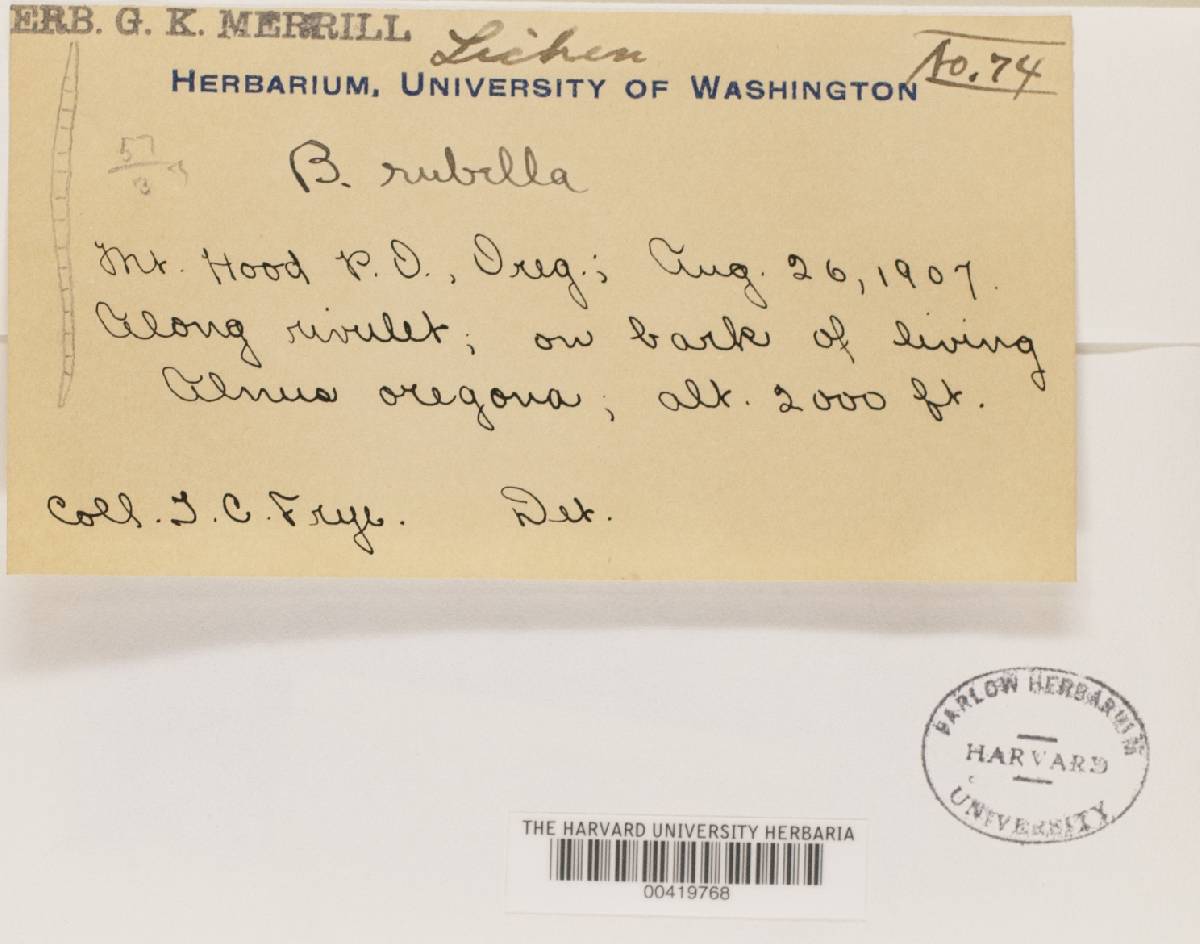 ERB. G. K. MERRILL
Lichen
No. 74
HERBARIUM, UNIVERSITY OF WASHINGTON
57
3
B. rubella
Mt. Hood P.O., Oreg.; Aug. 26, 1907.
Along rivulet; on bark of living
Alnus oregona; alt. 2000 ft.
Coll. T. C. Frye. Det.
FARLOW HERBARIUM
HARVARD
UNIVERSITY
THE HARVARD UNIVERSITY HERBARIA
00419768